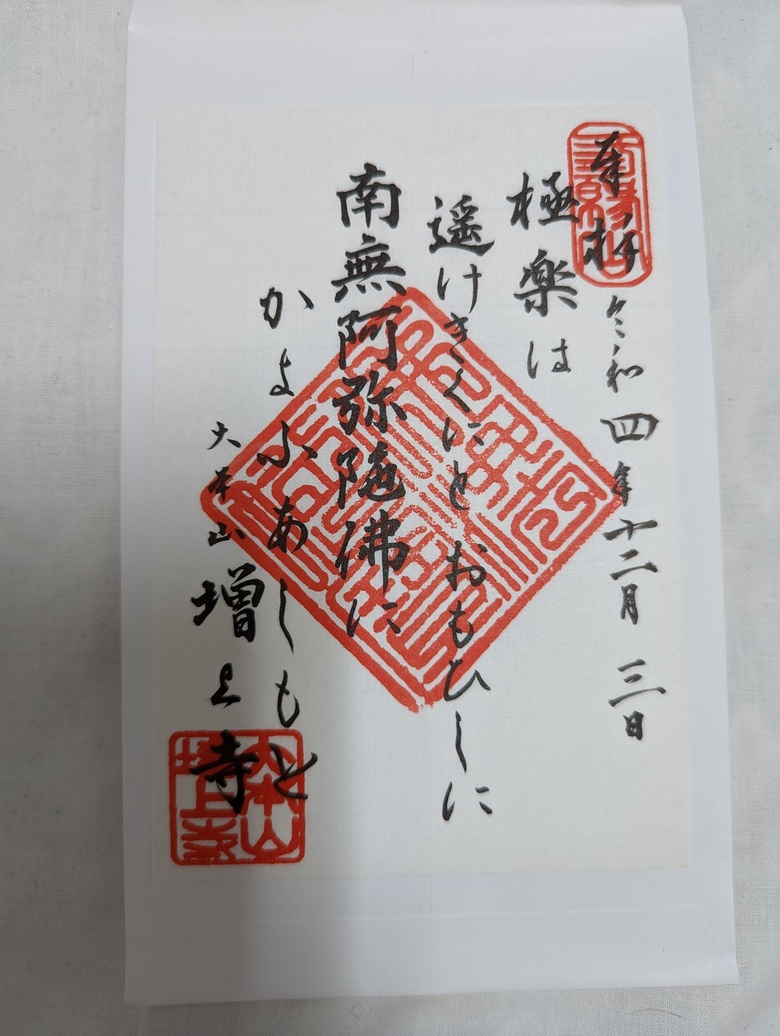 奉拝 令和四年十二月三日
極楽は
遥けきくにとおもひしに
南無阿弥陀佛に
かよふあしもと
大本山 増上寺
大本山
増上寺